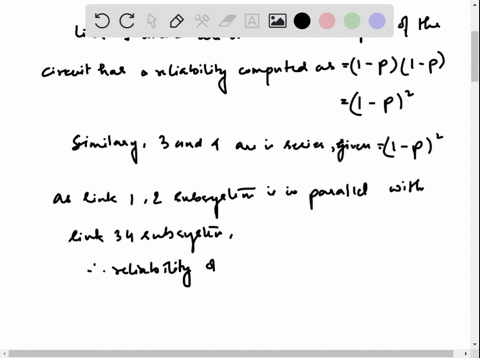 of the
circuit has a reliability computed as = (1-p)(1-p)
= (1-p)²
Similary, 3 and 4 are in series, given = (1-p)²
as link 1, 2 subsystem is in parallel with
link 34 subsystem,
∴ reliability of